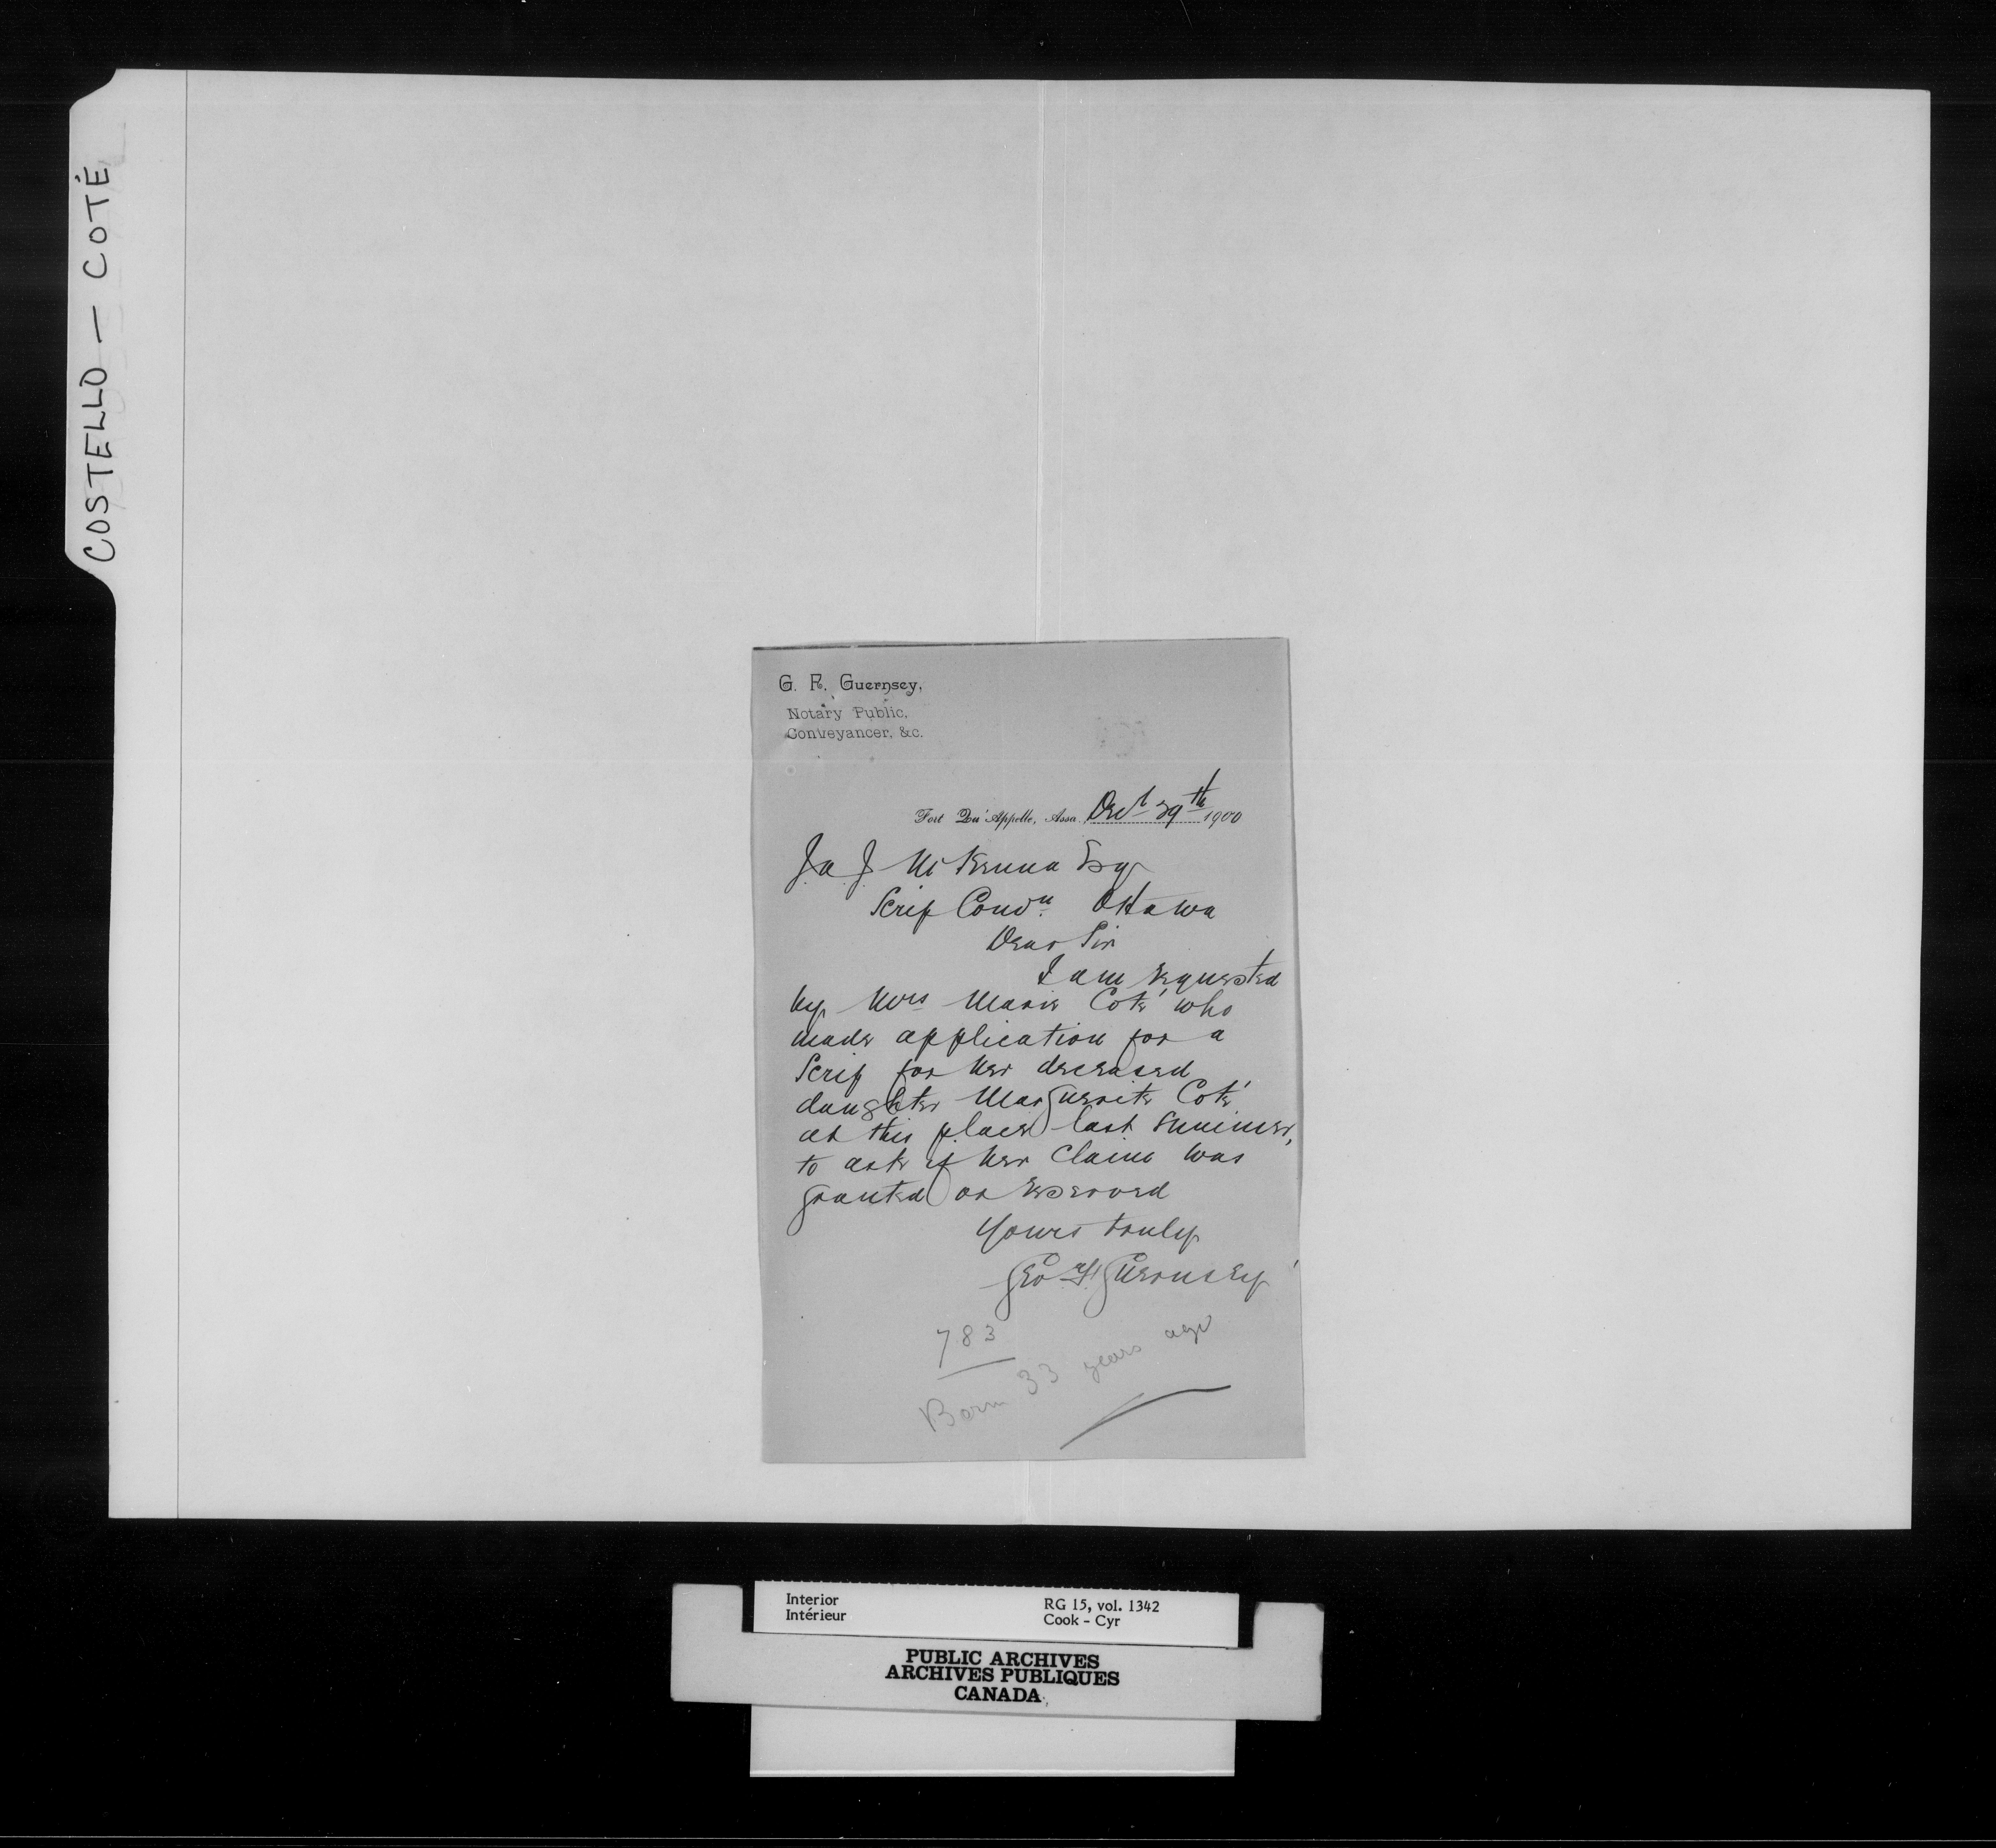 COSTELLO — COTÉ
G. F. Guernsey,
Notary Public,
Conveyancer, &c.
Fort Qu'Appelle, Assa. 29th 1900
J. A. J. McKenna Esq
Scrip Comn. Ottawa
Dear Sir
I am requested
by Mrs Marie Coté who
made application for a
Scrip for her deceased
daughter Marguerite Coté
at this place last summer,
to ask if her claim was
granted or reserved
Yours truly
Geo. F. Guernsey
783
Born 33 years ago
Interior
Intérieur
RG 15, vol. 1342
Cook - Cyr
PUBLIC ARCHIVES
ARCHIVES PUBLIQUES
CANADA